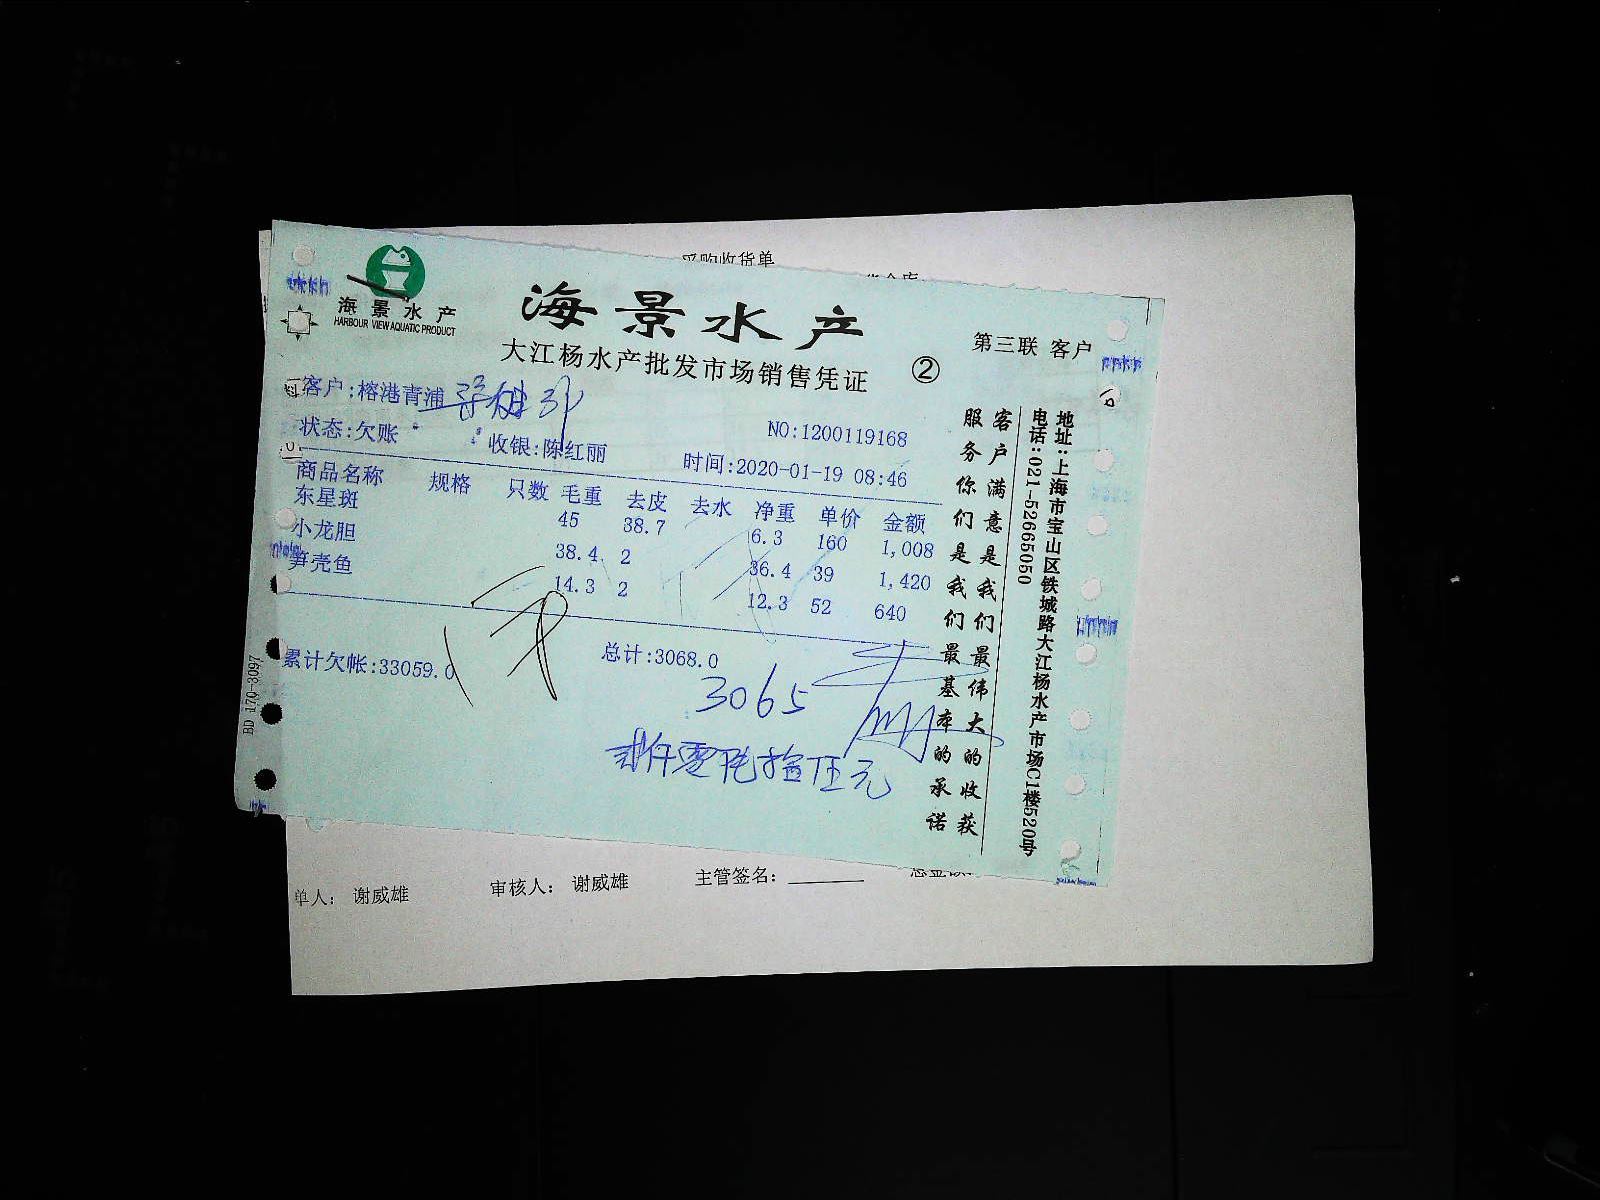 采购收货单
海景水产
HARBOUR VIEW AQUATIC PRODUCT
海景水产
大江杨水产批发市场销售凭证 ②
第三联 客户
客户:榕港青浦
状态:欠账 收银:陈红丽
NO:1200119168
时间:2020-01-19 08:46
商品名称 规格 只数 毛重 去皮 去水 净重 单价 金额
东星斑 45 38.7 6.3 160 1,008
小龙胆 38.4 2 36.4 39 1,420
笋壳鱼 14.3 2 12.3 52 640
累计欠帐:33059.0 总计:3068.0
3065
叁仟零陆拾伍元
客户满意是我们最伟大的收获
服务你们是我们最基本的承诺
地址:上海市宝山区铁城路大江杨水产市场C1楼520号
电话:021-52665050
BD 170-3097
单人: 谢威雄 审核人: 谢威雄 主管签名: